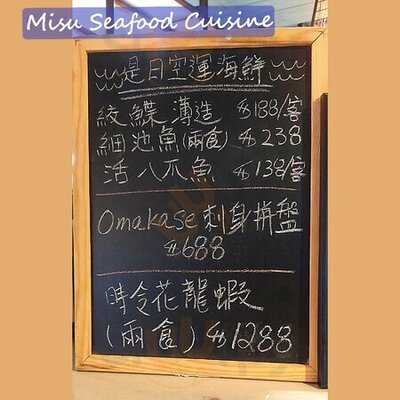 Misu Seafood Cuisine
是日空運海鮮
紋鰈薄造 $188/客
細池魚(兩食) $238
活八爪魚 $138/客
Omakase 刺身拼盤
$688
時令花龍蝦
(兩食) $1288